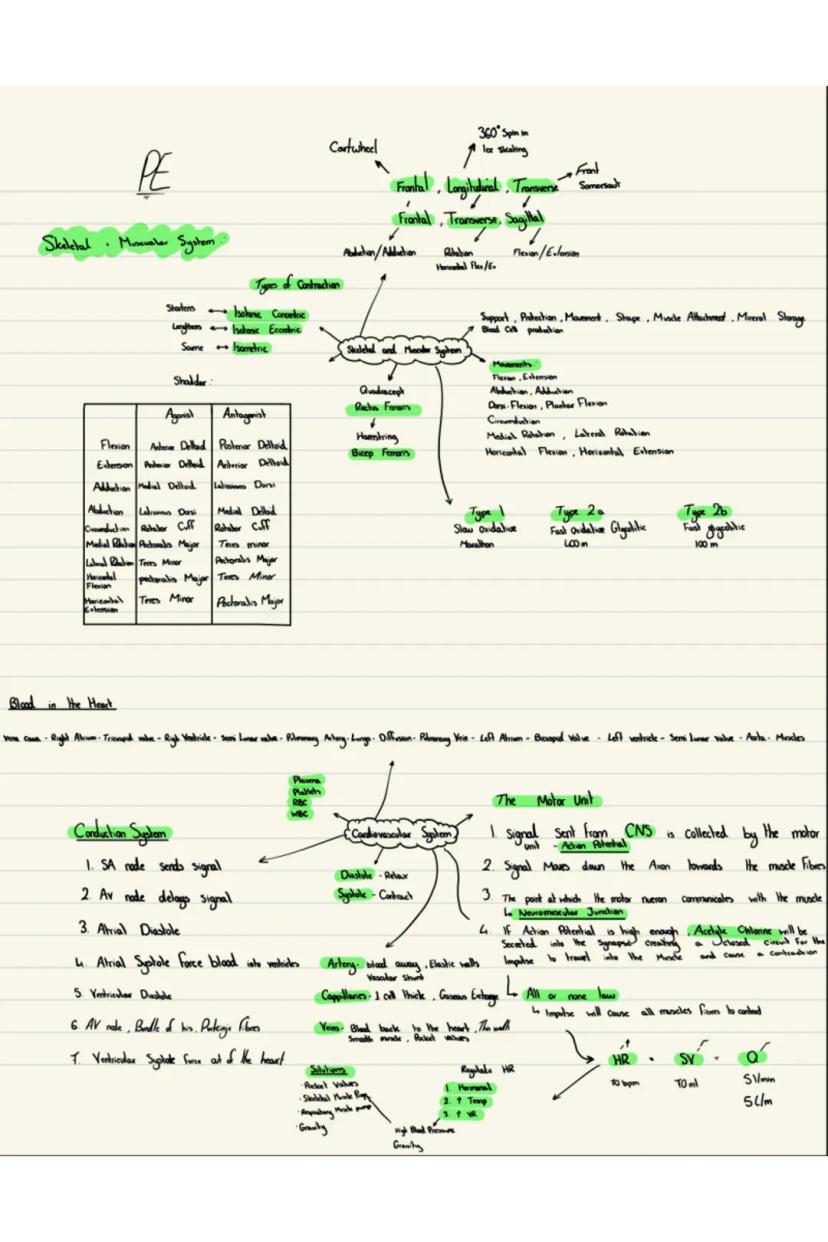 PE
Skeletal . Muscular System.
Cartwheel
360° Spin in
Ice skating
Front
Somersault
Frontal, Longitudinal, Transverse
Frontal, Transverse, Sagittal
Abduction/Adduction
Rotation
Horizontal Flex/Ex
Flexion/Extension
Types of Contraction
Shortens ↔ Isotonic Concentric
Lengthens ↔ Isotonic Eccentric
Same ↔ Isometric
Skeletal and Muscular System
Support, Protection, Movement, Shape, Muscle Attachment, Mineral Storage
Blood Cell production
Movements:
Flexion, Extension
Abduction, Adduction
Dorsi-Flexion, Plantar Flexion
Circumduction
Medial Rotation, Lateral Rotation
Horizontal Flexion, Horizontal Extension
Rectus Femoris
Hamstring
Bicep Femoris
Type 1
Slow Oxidative
Marathon
Type 2a
Fast Oxidative Glycolitic
400m
Type 2b
Fast glycolitic
100m
Shoulder:
Agonist Antagonist
Flexion Anterior Deltoid Posterior Deltoid
Extension Anterior Deltoid
Adduction Medial Deltoid Latissimus Dorsi
Abduction Latissimus Dorsi Medial Deltoid
Circumduction Rotator Cuff Rotator Cuff
Medial Rotation Pectoralis Major Teres minor
Lateral Rotation Teres Minor Pectoralis Major
Horizontal
Flexion pectoralis Major Teres Minor
Horizontal
Extension Teres Minor Pectoralis Major
Blood in the Heart
Vena cava - Right Atrium - Tricuspid valve - Ventricle - Semi Lunar valve - Pulmonary Artery - Lungs - Diffusion - Pulmonary Vein - Left Atrium - Bicuspid Valve - Left ventricle - Semi Lunar valve - Aorta - Muscles
Plasma
Platlets
RBC
WBC
Cardiovascular System
Conduction System
1. SA node sends signal
2. AV node delays signal
3. Atrial Diastole
4. Atrial Systole force blood into ventricles
5. Ventricular Diastole
6. AV node, Bundle of his, Fibres
7. Ventricular Systole force out of the heart
Diastole - Relax
Systole - Contract
Artery - blood away, Elastic walls
Vascular Shunt
Cappillaries - 1 cell thick, Gaseous
Veins - Blood back to the heart, Thin
Smooth muscle, Pocket valves
Solutions
· Pocket Valves
· Skeletal Muscle Pump
· Respiratory Muscle pump
· Gravity
Regulate HR
1. Hormonal
2. ↑ Temp
3. ↑ VR
High Blood Pressure
Gravity
The Motor Unit
1. Signal Sent from CNS is collected by the motor
unit - Action Potential
2. Signal Moves down the Axon towards the muscle Fibres
3. The point at which the motor communicates with the muscle
↳ Neuromuscular Junction
4. IF Action Potential is high enough, Acetyle Chlorine will be
Secreted into the Synapse creating a closed circuit for the
Impulse to travel into the Muscle and cause a contraction
↳ All or none law
↳ Impulse will cause all muscles fibres to contract
HR · SV = Q
70 bpm 70ml 5l/min
5L/m